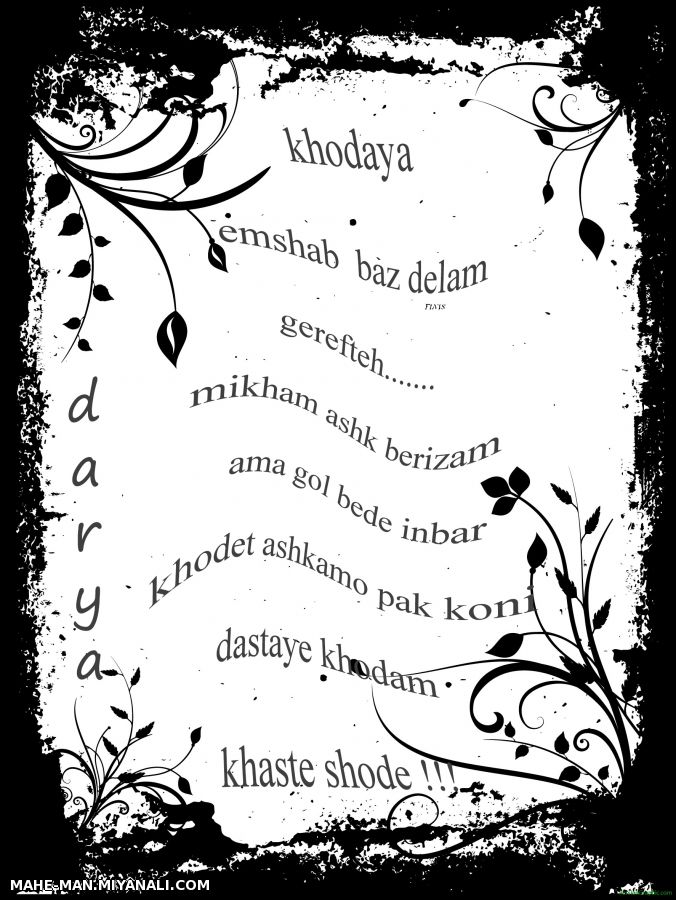 khodaya
emshab baz delam
gerefteh.......
mikham ashk berizam
ama gol bede inbar
khodet ashkamo pak koni
dastaye khodam
khaste shode !!!
darya
MAHE-MAN.MIYANALI.COM